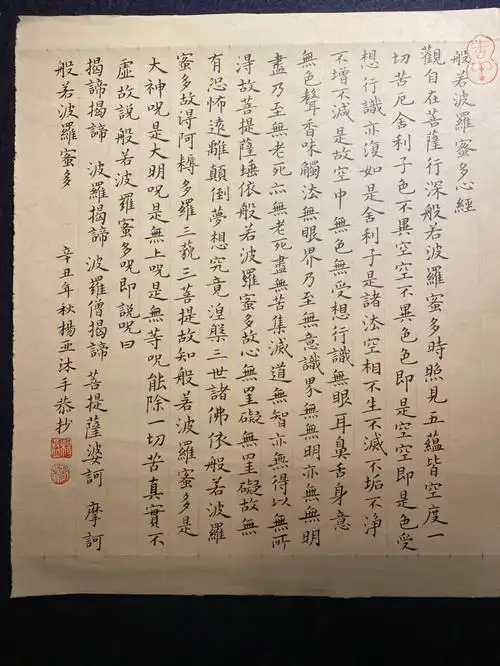 般若波羅蜜多心經
觀自在菩薩行深般若波羅蜜多時照見五蘊皆空度一
切苦厄舍利子色不異空空不異色色即是空空即是色受
想行識亦復如是舍利子是諸法空相不生不滅不垢不淨
不增不減是故空中無色無受想行識無眼耳鼻舌身意
無色聲香味觸法無眼界乃至無意識界無無明亦無無明
盡乃至無老死亦無老死盡無苦集滅道無智亦無得以無所
得故菩提薩埵依般若波羅蜜多故心無罣礙無罣礙故無
有恐怖遠離顛倒夢想究竟涅槃三世諸佛依般若波羅
蜜多故得阿耨多羅三藐三菩提故知般若波羅蜜多是
大神呪是大明呪是無上呪是無等呪能除一切苦真實不
虛故說般若波羅蜜多呪即說呪曰
揭諦揭諦 波羅揭諦 波羅僧揭諦 菩提薩婆訶 摩訶
般若波羅蜜多 辛丑年秋楊亚沐手恭抄